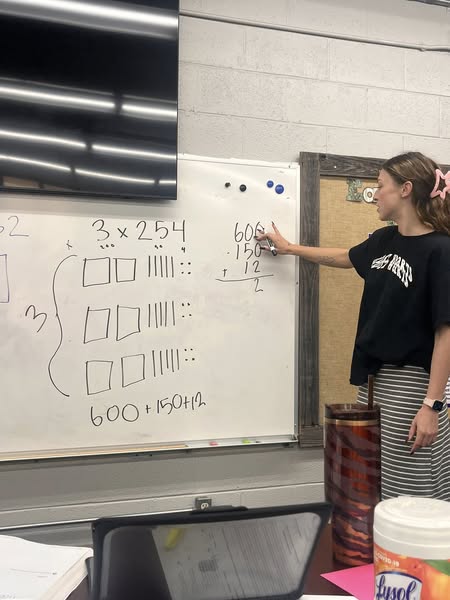 3 x 254
3
600 + 150 + 12
600
150
+ 12
2
Lysol